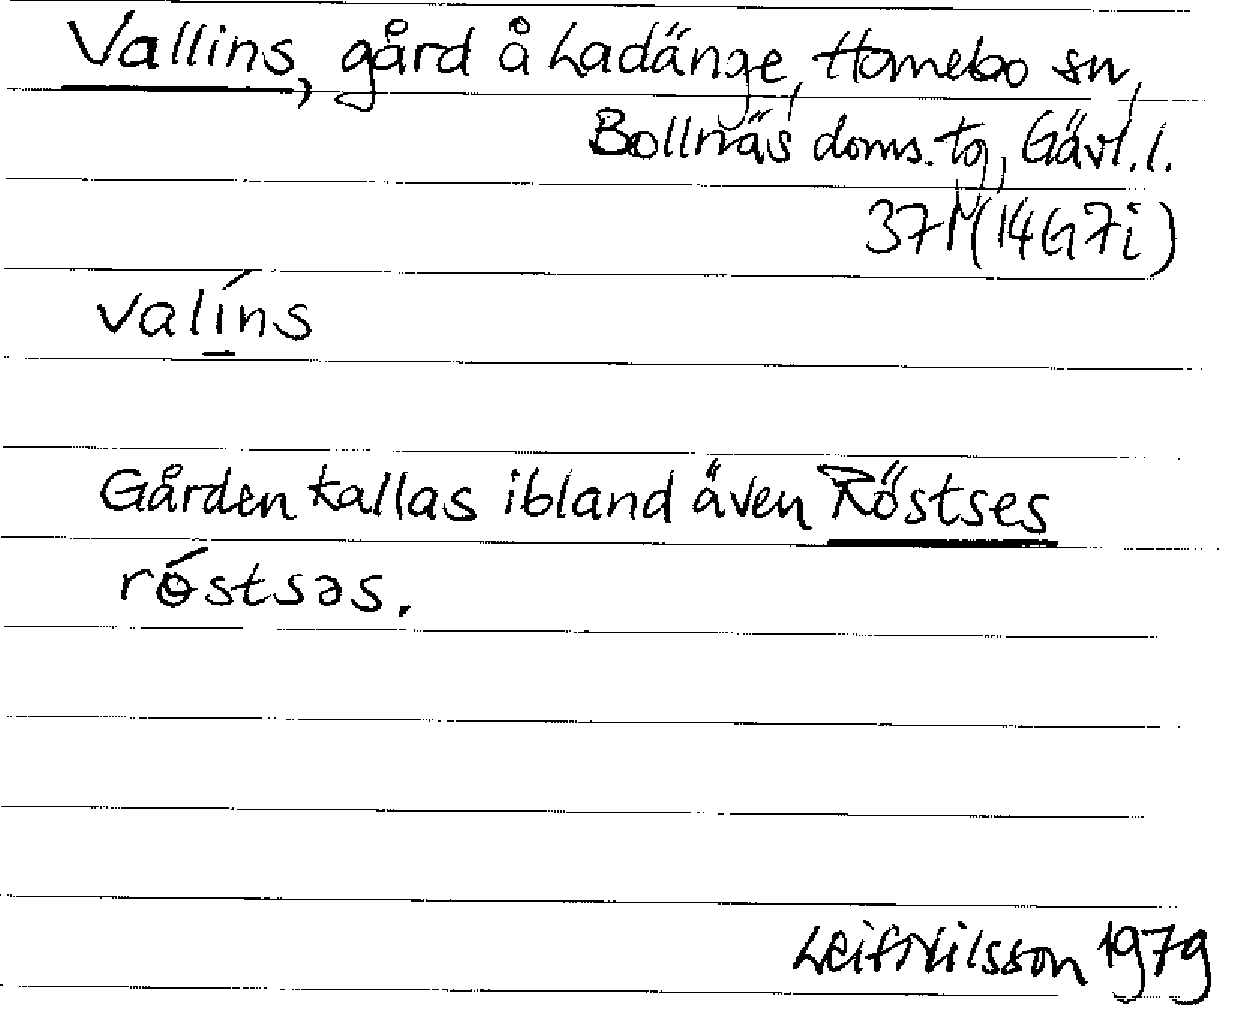 Vallins, gård å Ladänge, Hamebo sn,
Bollnäs doms. tg, Gävl. l.
37M (14G7i)
valíns
Gården kallas ibland även Röstses
rɵ́stsəs.
Leif Nilsson 1979